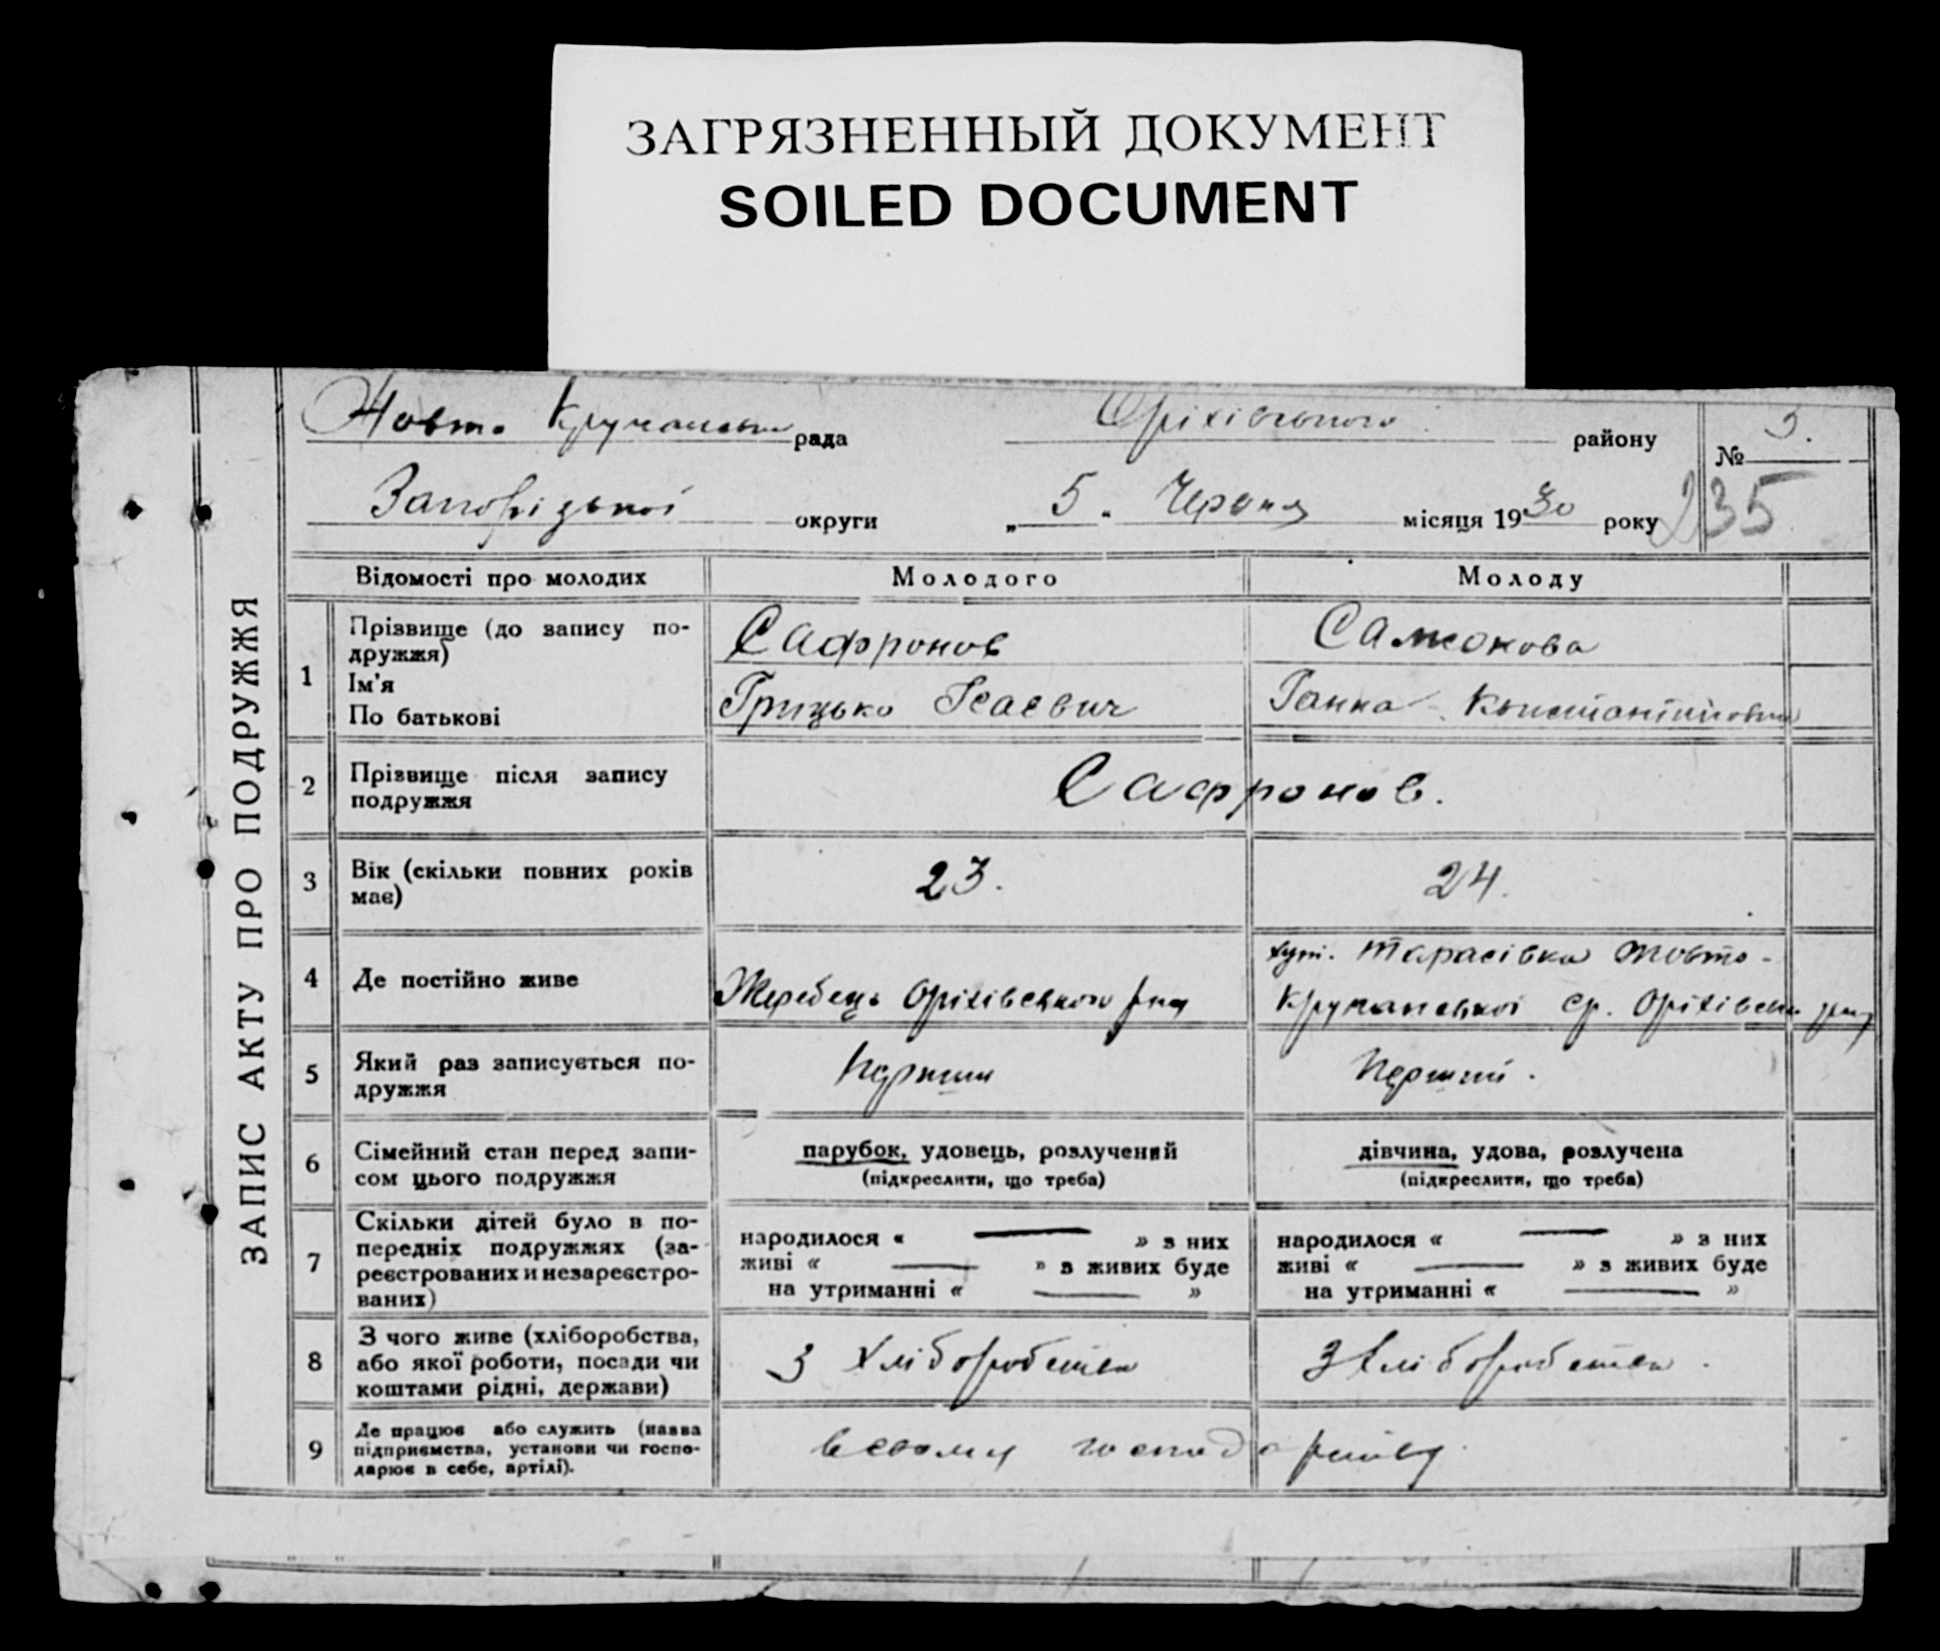 ЗАГРЯЗНЕННЫЙ ДОКУМЕНТ
SOILED DOCUMENT
ЗАПИС АКТУ ПРО ПОДРУЖЖЯ
Жовто Кручанська рада Оріхівського району № 5.
Запорізької округи „ 5 " Червня місяця 1930 року 235
Відомості про молодих Молодого Молоду
1 Прізвище (до запису по- Сафронов Самсонова
дружжя)
Ім'я Грицько Ісаєвич Ганна Константиновна
По батькові
2 Прізвище після запису Сафронов.
подружжя
3 Вік (скільки повних років 23. 24.
має)
4 Де постійно живе Жеребець Оріхівського р-ну хут. Тарасівка Жовто-
Кручанської ср. Оріхівськ р-ну
5 Який раз записується по- Перший Перший.
дружжя
6 Сімейний стан перед запи- парубок, удовець, розлучений дівчина, удова, розлучена
сом цього подружжя (підкреслити, що треба) (підкреслити, що треба)
7 Скільки дітей було в по- народилося « — » з них народилося « — » з них
передніх подружжях (за- живі « — » з живих буде живі « — » з живих буде
реєстрованих и незареєстро- на утриманні « — » на утриманні « — »
ваних)
8 З чого живе (хліборобства, З хліборобства З хліборобства.
або якої роботи, посади чи
коштами рідні, держави)
9 Де працює або служить (назва в своему господарстві
підприємства, установи чи госпо-
дарює в себе, артілі).